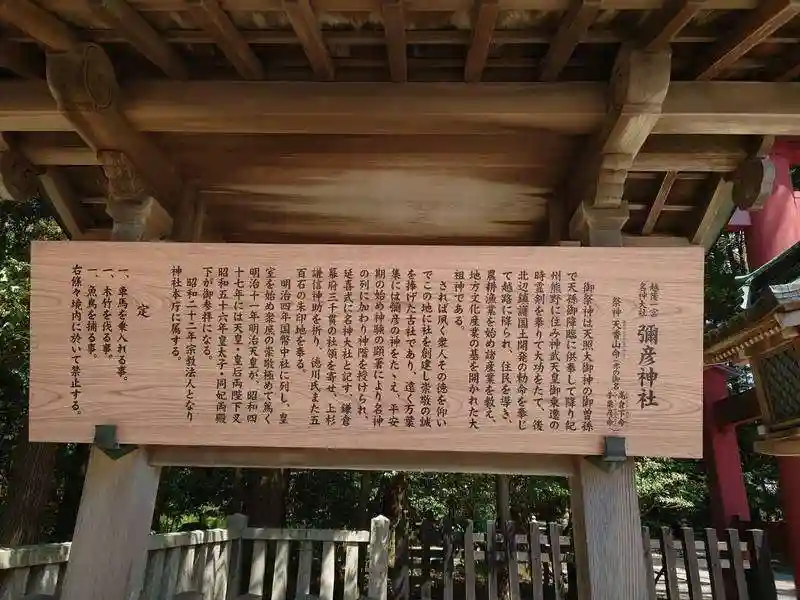 越後一宮
名神大社
彌彦神社
祭神 天香山命
御祭神は天照大御神の御曽孫
で天孫御降臨に供奉して降り紀
州熊野に住み神武天皇御東遷の
時霊剣を奉りて大功をたて、後
北辺鎮護国土開発の勅命を奉じ
て越路に降られ、住民を導き、
農耕漁業を始め諸産業を教え、
地方文化産業の基を開かれた大
祖神である。
されば夙く衆人その徳を仰い
でこの地に社を創建し崇敬の誠
を捧げた古社であり、遠く万葉
集には彌彦の神をたゝえ、平安
期の始め神験の顕著により名神
の列に加わり神階を授けられ、
延喜式に名神大社と記す、鎌倉
幕府三千貫の社領を寄せ、上杉
謙信神助を祈り、徳川氏また五
百石の朱印地を奉る。
明治四年国幣中社に列し、皇
室を始め衆庶の崇敬極めて篤く
明治十一年明治天皇が、昭和四
十七年には天皇・皇后両陛下又
昭和五十六年皇太子・同妃両殿
下が御参拝になる。
昭和二十二年宗教法人となり
神社本庁に属する。
定
一、車馬を乗入れる事。
一、木竹を伐る事。
一、魚鳥を捕る事。
右條々境内に於いて禁止する。